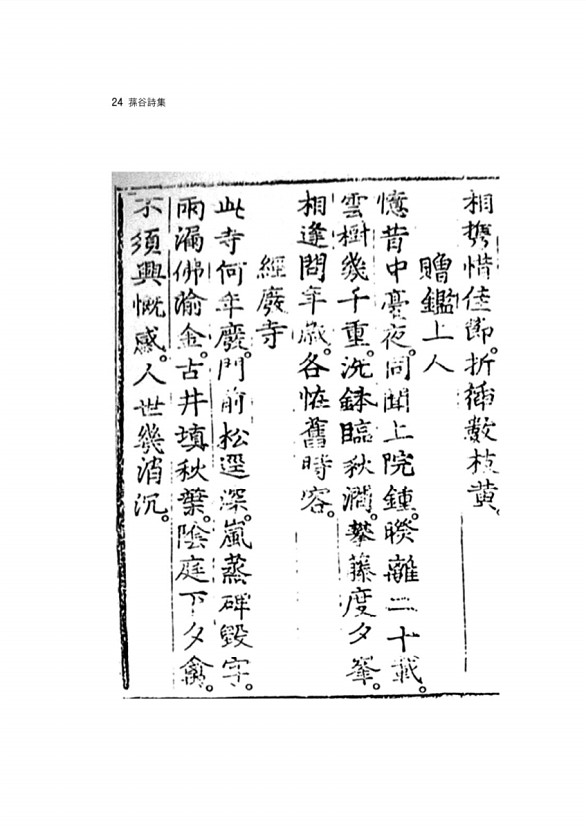 24 蓀谷詩集
相携惜佳節。折揷數枝黃。
贈鑑上人
憶昔中臺夜。同聞上院鍾。睽離二十載。
雲樹幾千重。洗鉢臨秋澗。攀藤度夕峯。
相逢問年歲。各恠舊時容。
經廢寺
此寺何年廢。門前松逕深。嵐蒸碑毀字。
雨漏佛渝金。古井塡秋葉。陰庭下夕禽。
不須興慨感。人世幾消沉。